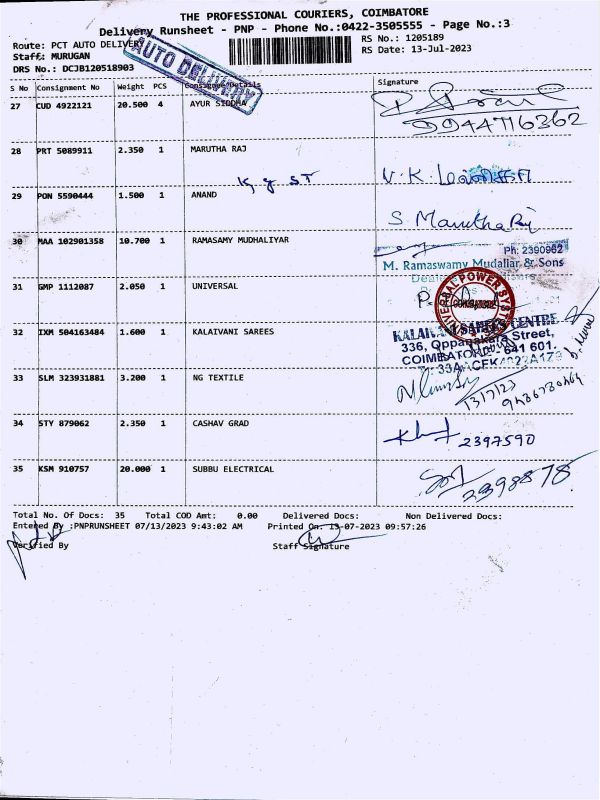 THE PROFESSIONAL COURIERS, COIMBATORE
Delivery Runsheet - PNP - Phone No.:0422-3505555 - Page No.:3
Route: PCT AUTO DELIVERY
RS No.: 1205189
Staff: MURUGAN
RS Date: 13-Jul-2023
DRS No.: DCJB120518903
AUTO DELIVERY
S No Consignment No Weight PCS Consignee Details Signature
27 CUD 4922121 20.500 4 AYUR SIDDHA
9944716362
28 PRT 5089911 2.350 1 MARUTHA RAJ
V. K.
29 PON 5590444 1.500 1 ANAND
S. Marutha Raj
30 MAA 102901358 10.700 1 RAMASAMY MUDHALIYAR
Ph: 2390962
M. Ramaswamy Mudaliar & Sons
31 GMP 1112087 2.050 1 UNIVERSAL
UNIVERSAL POWER SYSTEMS
COIMBATORE
32 IXM 504163484 1.600 1 KALAIVANI SAREES
KALAIVANI SAREES CENTRE
336, Oppanakara Street,
COIMBATORE - 641 601.
33 SLM 323931881 3.200 1 NG TEXTILE
13/7/23
34 STY 879062 2.350 1 CASHAV GRAD
2397590
35 KSM 910757 20.000 1 SUBBU ELECTRICAL
2398878
Total No. Of Docs: 35 Total COD Amt: 0.00 Delivered Docs: Non Delivered Docs:
Entered By :PNPRUNSHEET 07/13/2023 9:43:02 AM Printed On: 13-07-2023 09:57:26
Verified By Staff Signature